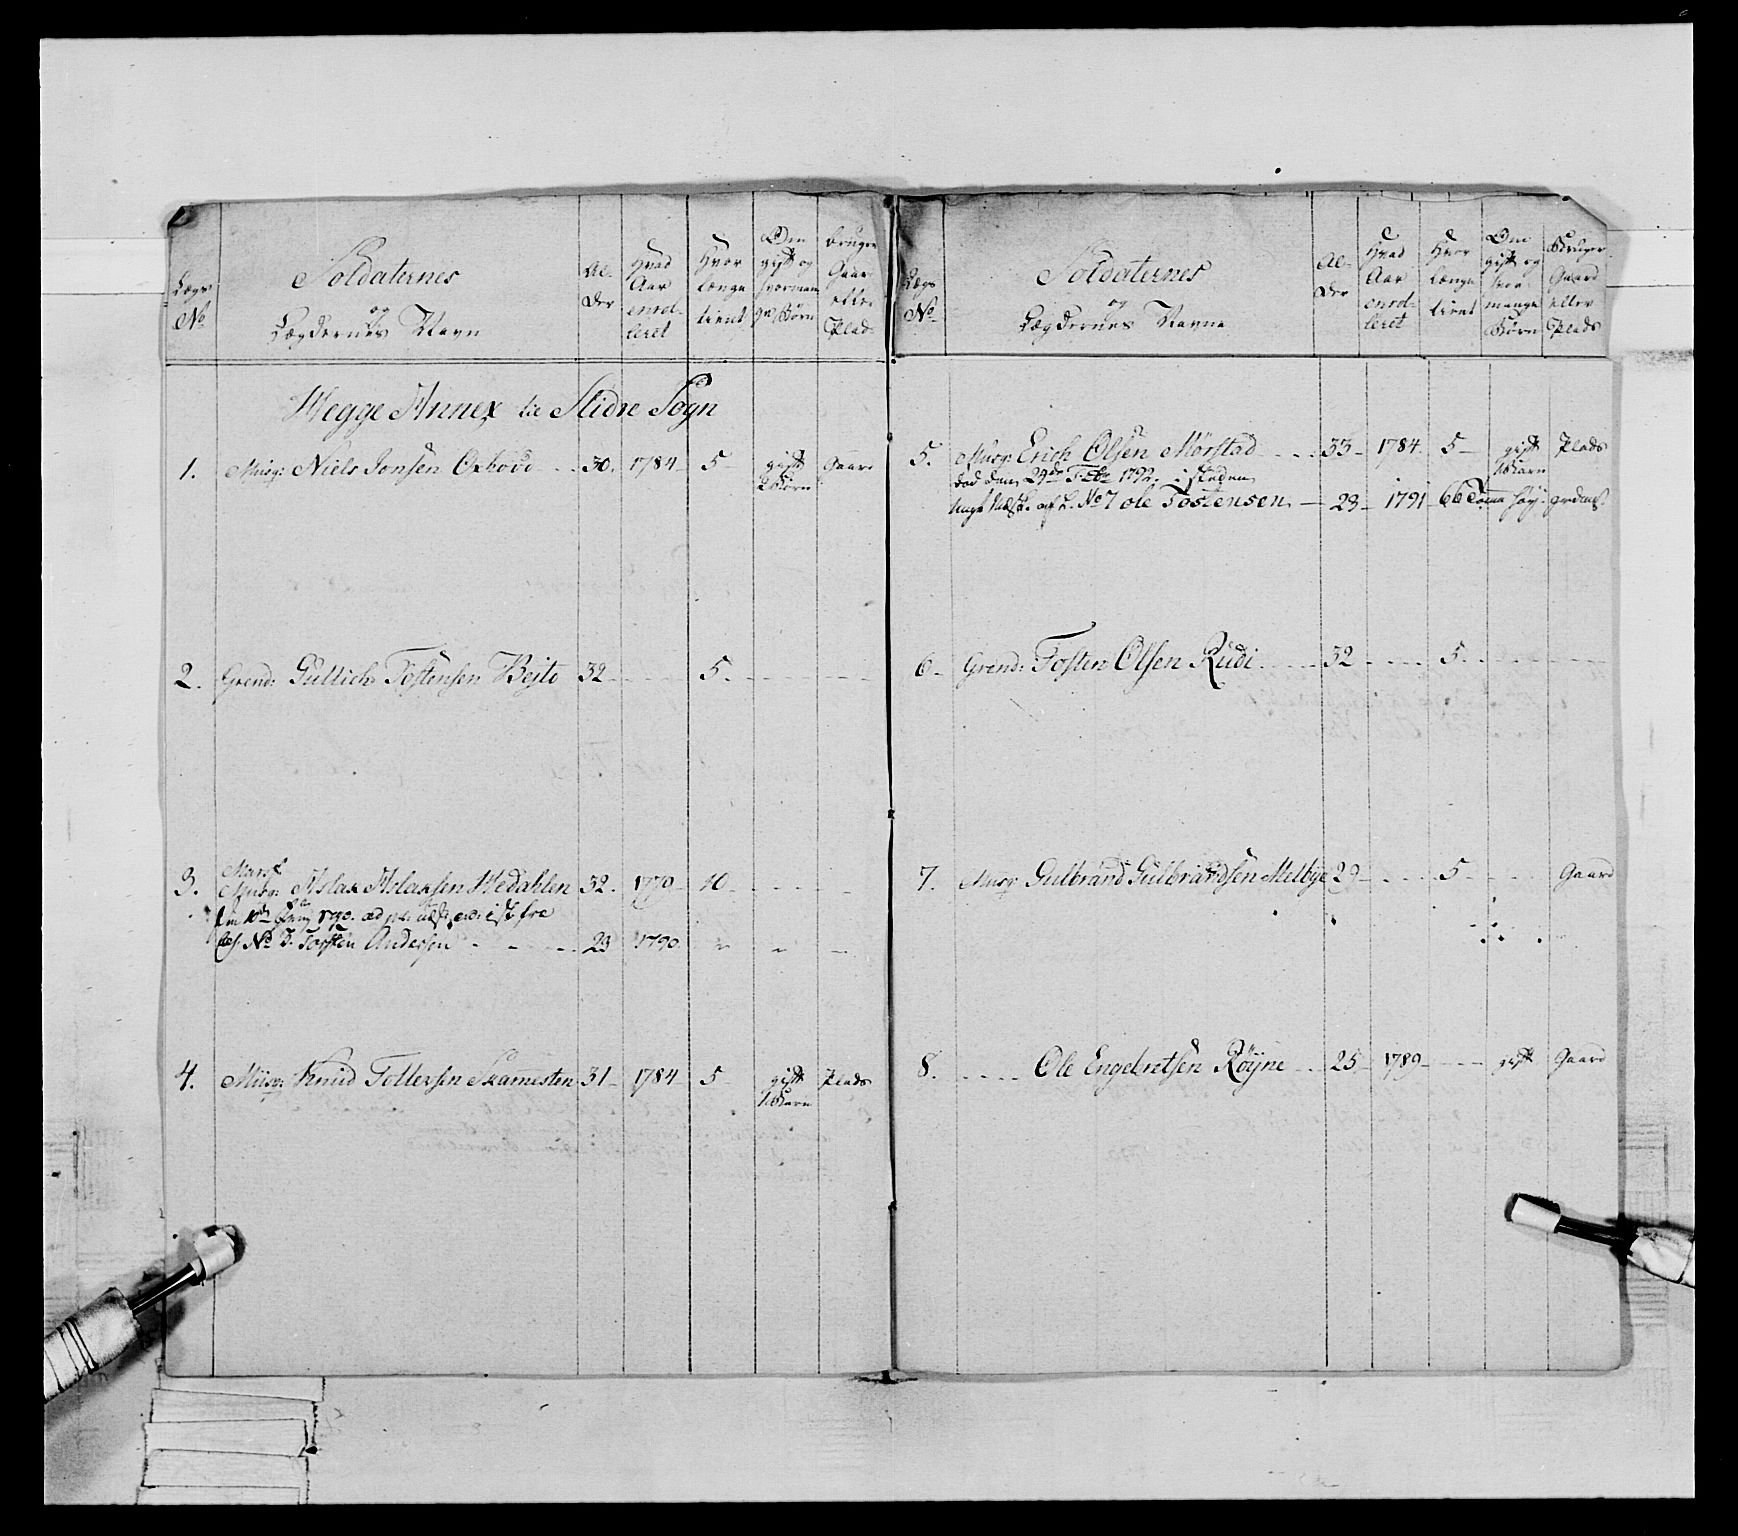 Lægs No
Soldaternes og Lægdernes Navn
Al- der
Hvad Aar enrol- leret
Hvor længe tient
Om gift og hvorman ge Børn
bruger Gaar eller Plads
Hegge Annex til Slidre Sogn
1. Musq: Niels Jonsen Oxhovd 30. 1784 5 gift Gaard
2 Børn
2. Grend: Gullich Tostensen Bejto 32 5
3. Musq: Aslax Aslaxsen Hedahlen 32. 1779 10
No 3. Torsten Andersen 23 1790
4. Musq: Knud Tollersen Skamesten 31 1784 5 gift Plads
1 Barn
Lægs No
Soldaternes og Lægdernes Navne
Al- der
Hvad Aar enrol- leret
Hvor længe tient
Om gift og hvor mange Børn
Bruger Gaard eller Plads
5. Musq: Erich Olsen Mørstad 33 1784 5 gift Plads
1 Barn
død den 24de Febr 1792. i steden
af L. No 7 ole Tostensen 23 1791 66 Tom høj
6. Grend: Tosten Olsen Rudi 32 5.
7. Musq: Gulbrand Gulbrandsen Melbye 29 5 Gaard
8. Ole Engebretsen Røyne 25 1789 gift Gaard